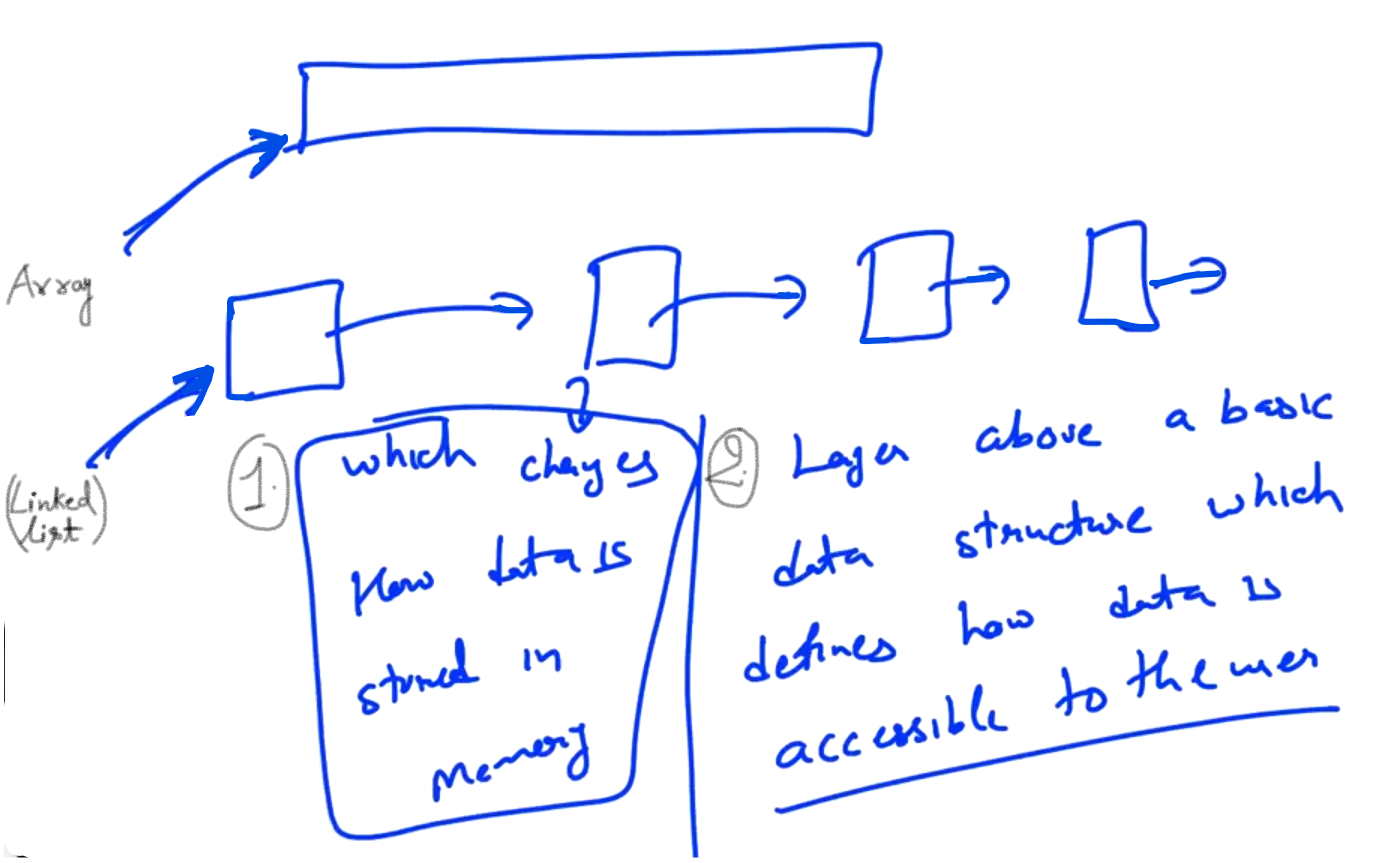 Array
(Linked
list)
1.
which changes
How data is
stored in
memory
2.
Layer above a basic
data structure which
defines how data is
accessible to the user